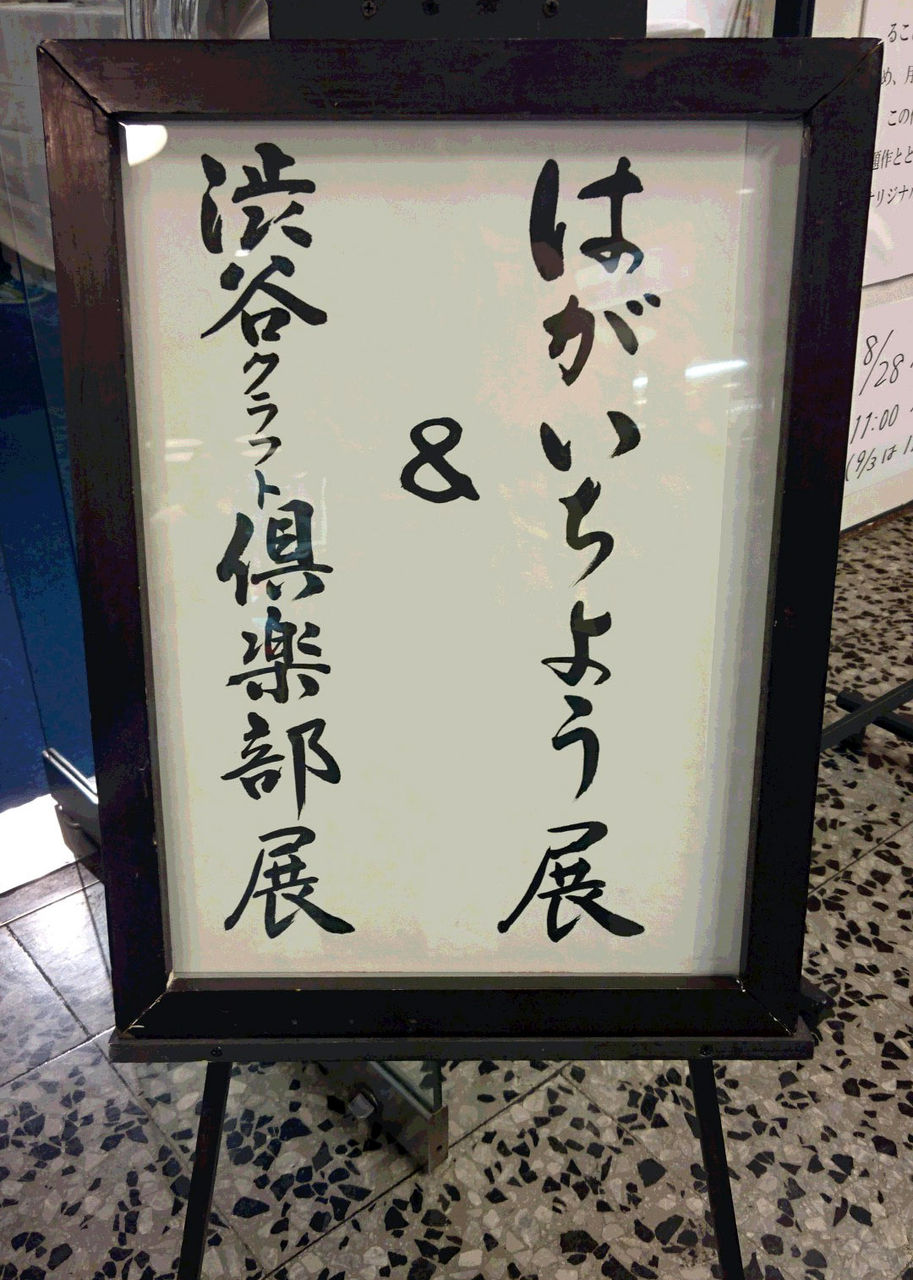 はがいちよう展
&
渋谷クラフト倶楽部展
るこ
め、月
この
題作とと
オリジナ
8/28
11:00
(9/3は